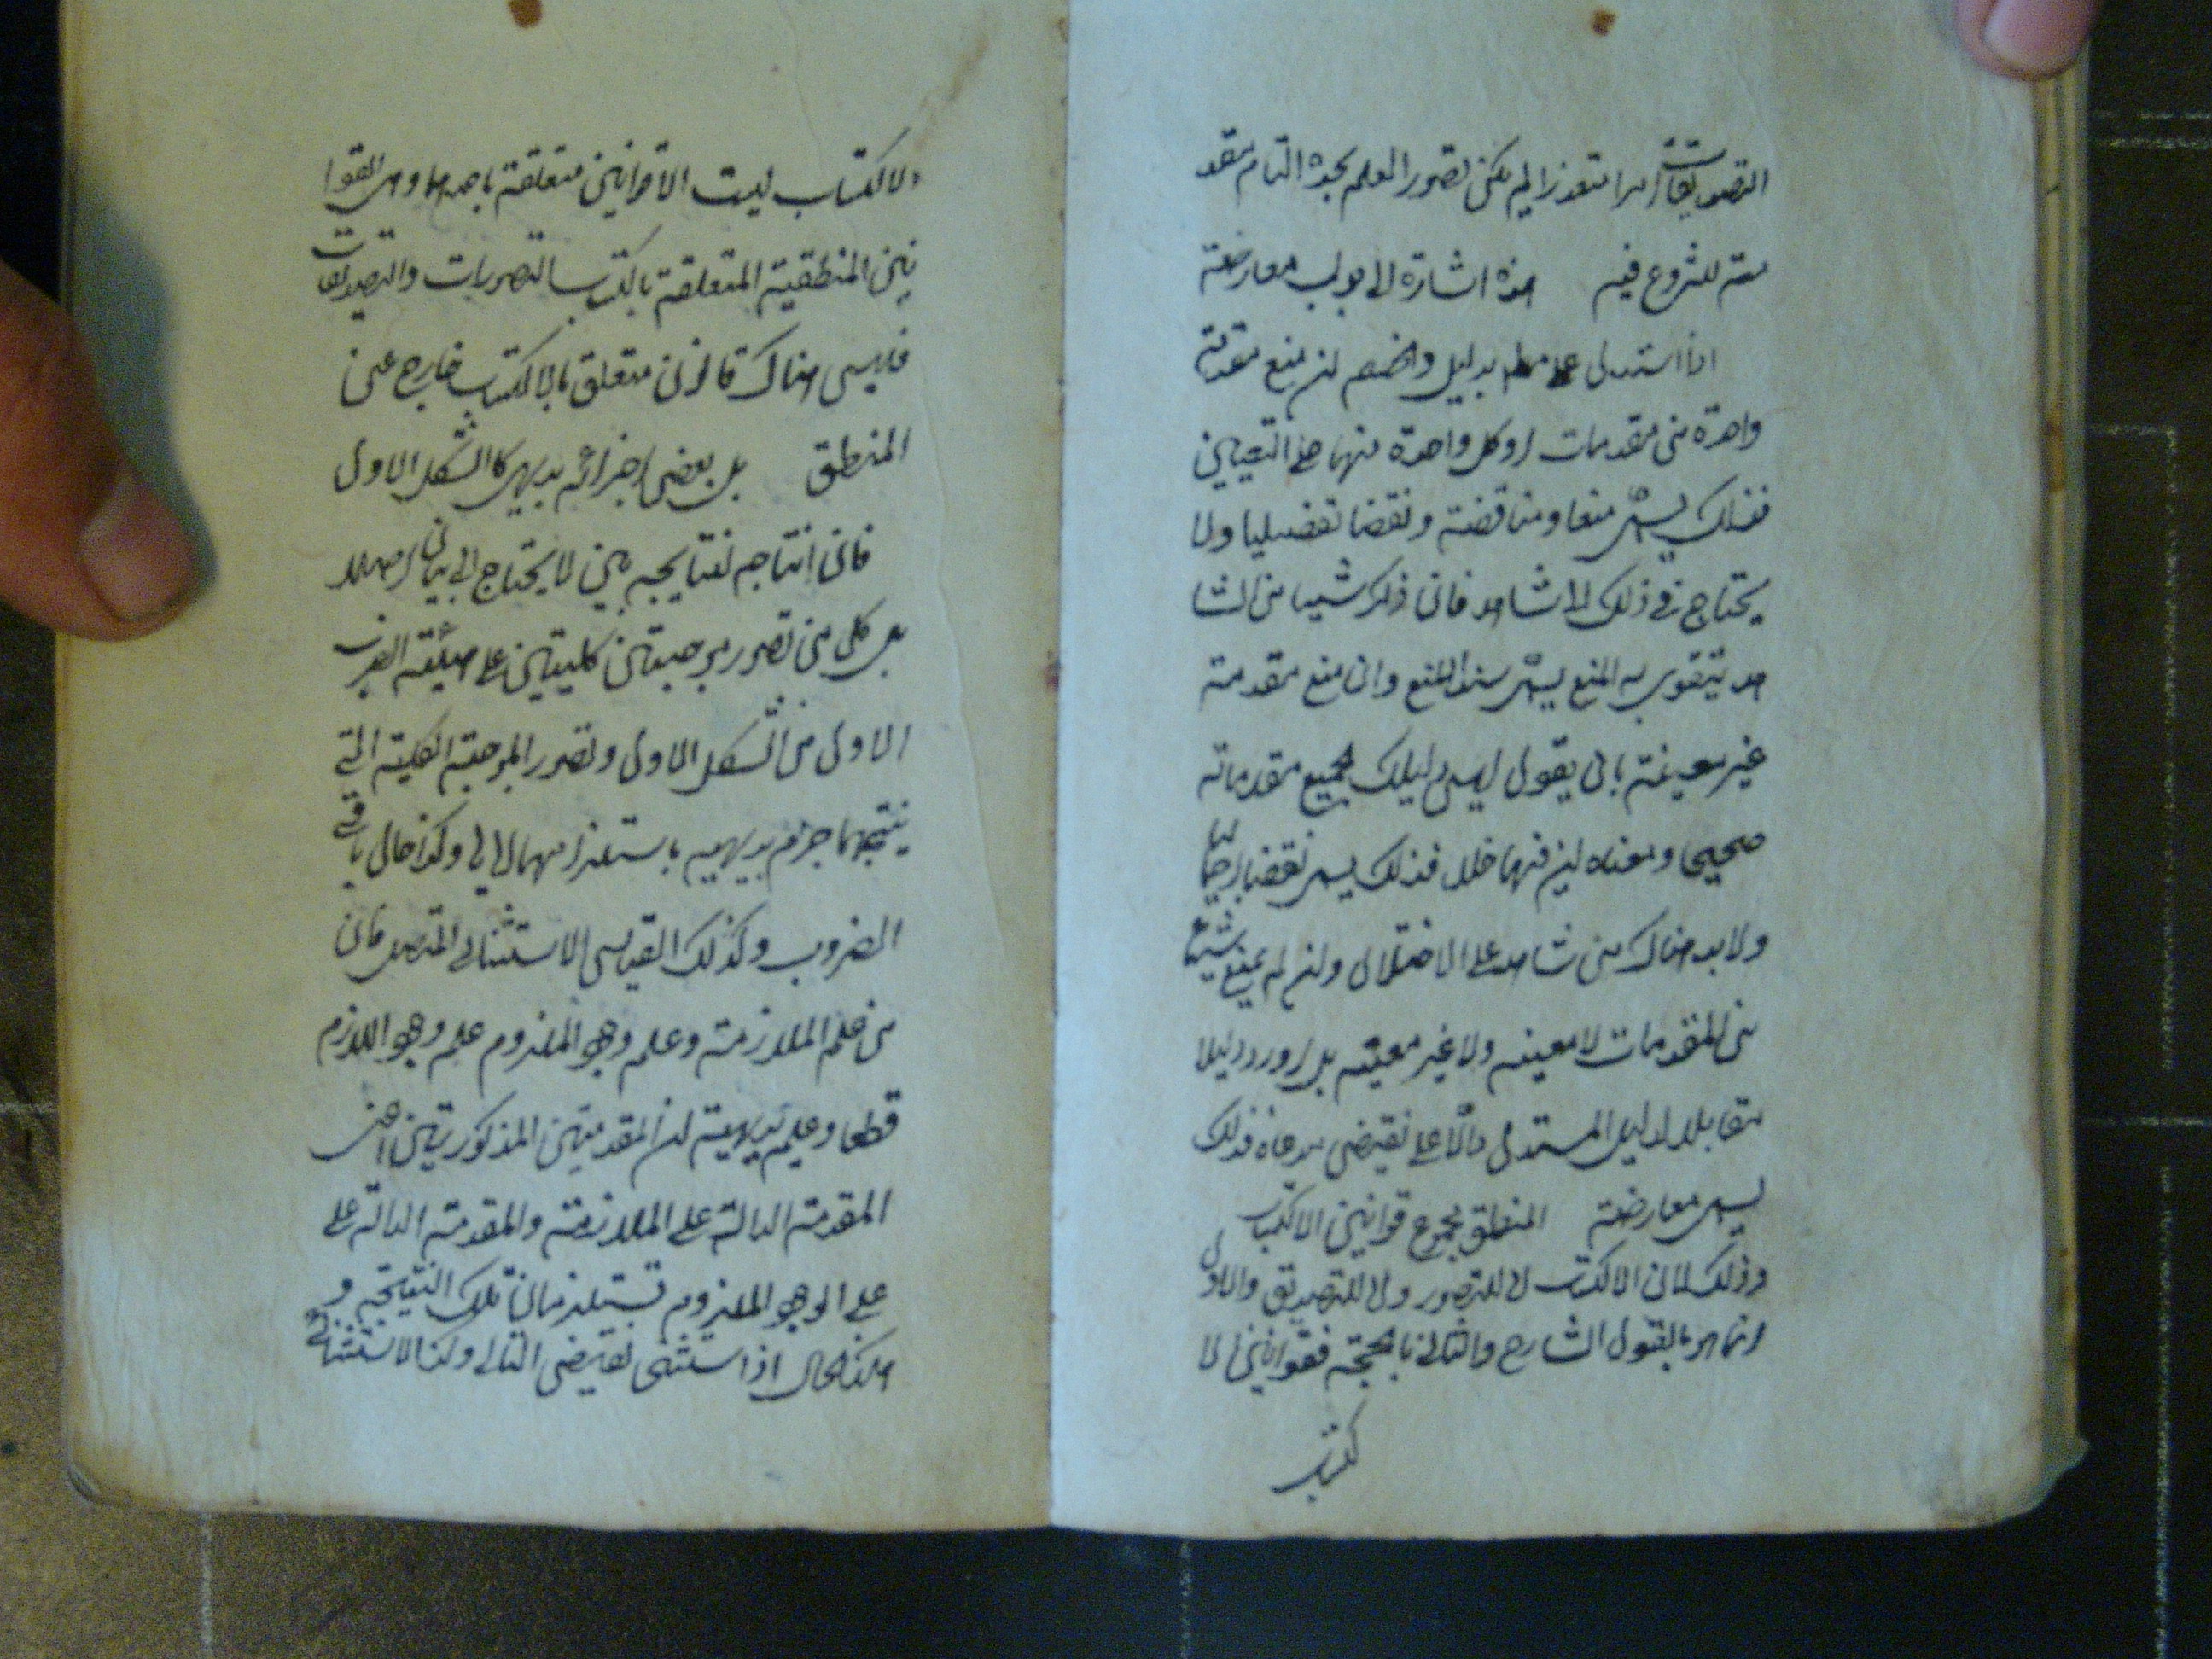 التصديقات امرا متعذرا لم يكن تصور العلم بحده التام مقد
مته للشروع فيه هذه اشارة الى جواب معارضة
اذا استدل على مط بدليل والخصم لن منع مقدمة
واحدة من مقدمات او كل واحدة منهما على التعيين
فذلك يسمى منعا ومناقضة ونقضا تفصيليا ولا
يحتاج في ذلك الى شاهد فان ذكر شيئا من الشا
هد يتقوى به المنع يسمى سندا للمنع وان منع مقدمة
غير معينة بان يقول ليس دليلك بجميع مقدماته
صحيحا ومعناه لن فيها خللا فذلك يسمى نقضا اجماليا
ولا بد هناك من شاهد على الاختلال ولن لم يمنع شيئا
من المقدمات لا معينه ولا غير معينه بل اورد دليلا
مقابلا لدليل المستدل دالا على نقيض مدعاه فذلك
يسمى معارضة المنطق مجموع قوانين الاكتساب
وذلك لان الاكتساب اما للتصور واما للتصديق والاول
انما هو بالقول الشارح والثاني بالحجة فقوانين الا
كتساب
الاكتساب ليست الا قوانين متعلقة باحدهما وهى القوا
نين المنطقية المتعلقة باكتساب التصورات والتصديقات
فليس هناك قانون متعلق بالاكتساب خارج عن
المنطق بل بعض اجزائه بديهي كالشكل الاول
فان انتاجه لنتايجه بين لا يحتاج الى بيان اصلا
بل كل من تصور موجبتين كليتين على هيئة الضرب
الاول من الشكل الاول وتصور الموجبة الكلية التي
ينتجهما جزم بديهيه باستلزامهما اياها وكذا حال باقي
الضروب وكذلك القياس الاستثنائي المتصل فان
من علم الملازمة وعلم وجود الملزوم علم وجود اللازم
قطعا وعلم بديهية لن المقدمتين المذكورتين اعني
المقدمة الدالة على الملازمة والمقدمة الدالة على
على الوجود الملزوم تستلزمان تلك النتيجة و
هكذا الحال اذا استثنى نقيض التالي وكذا الاستثنائي